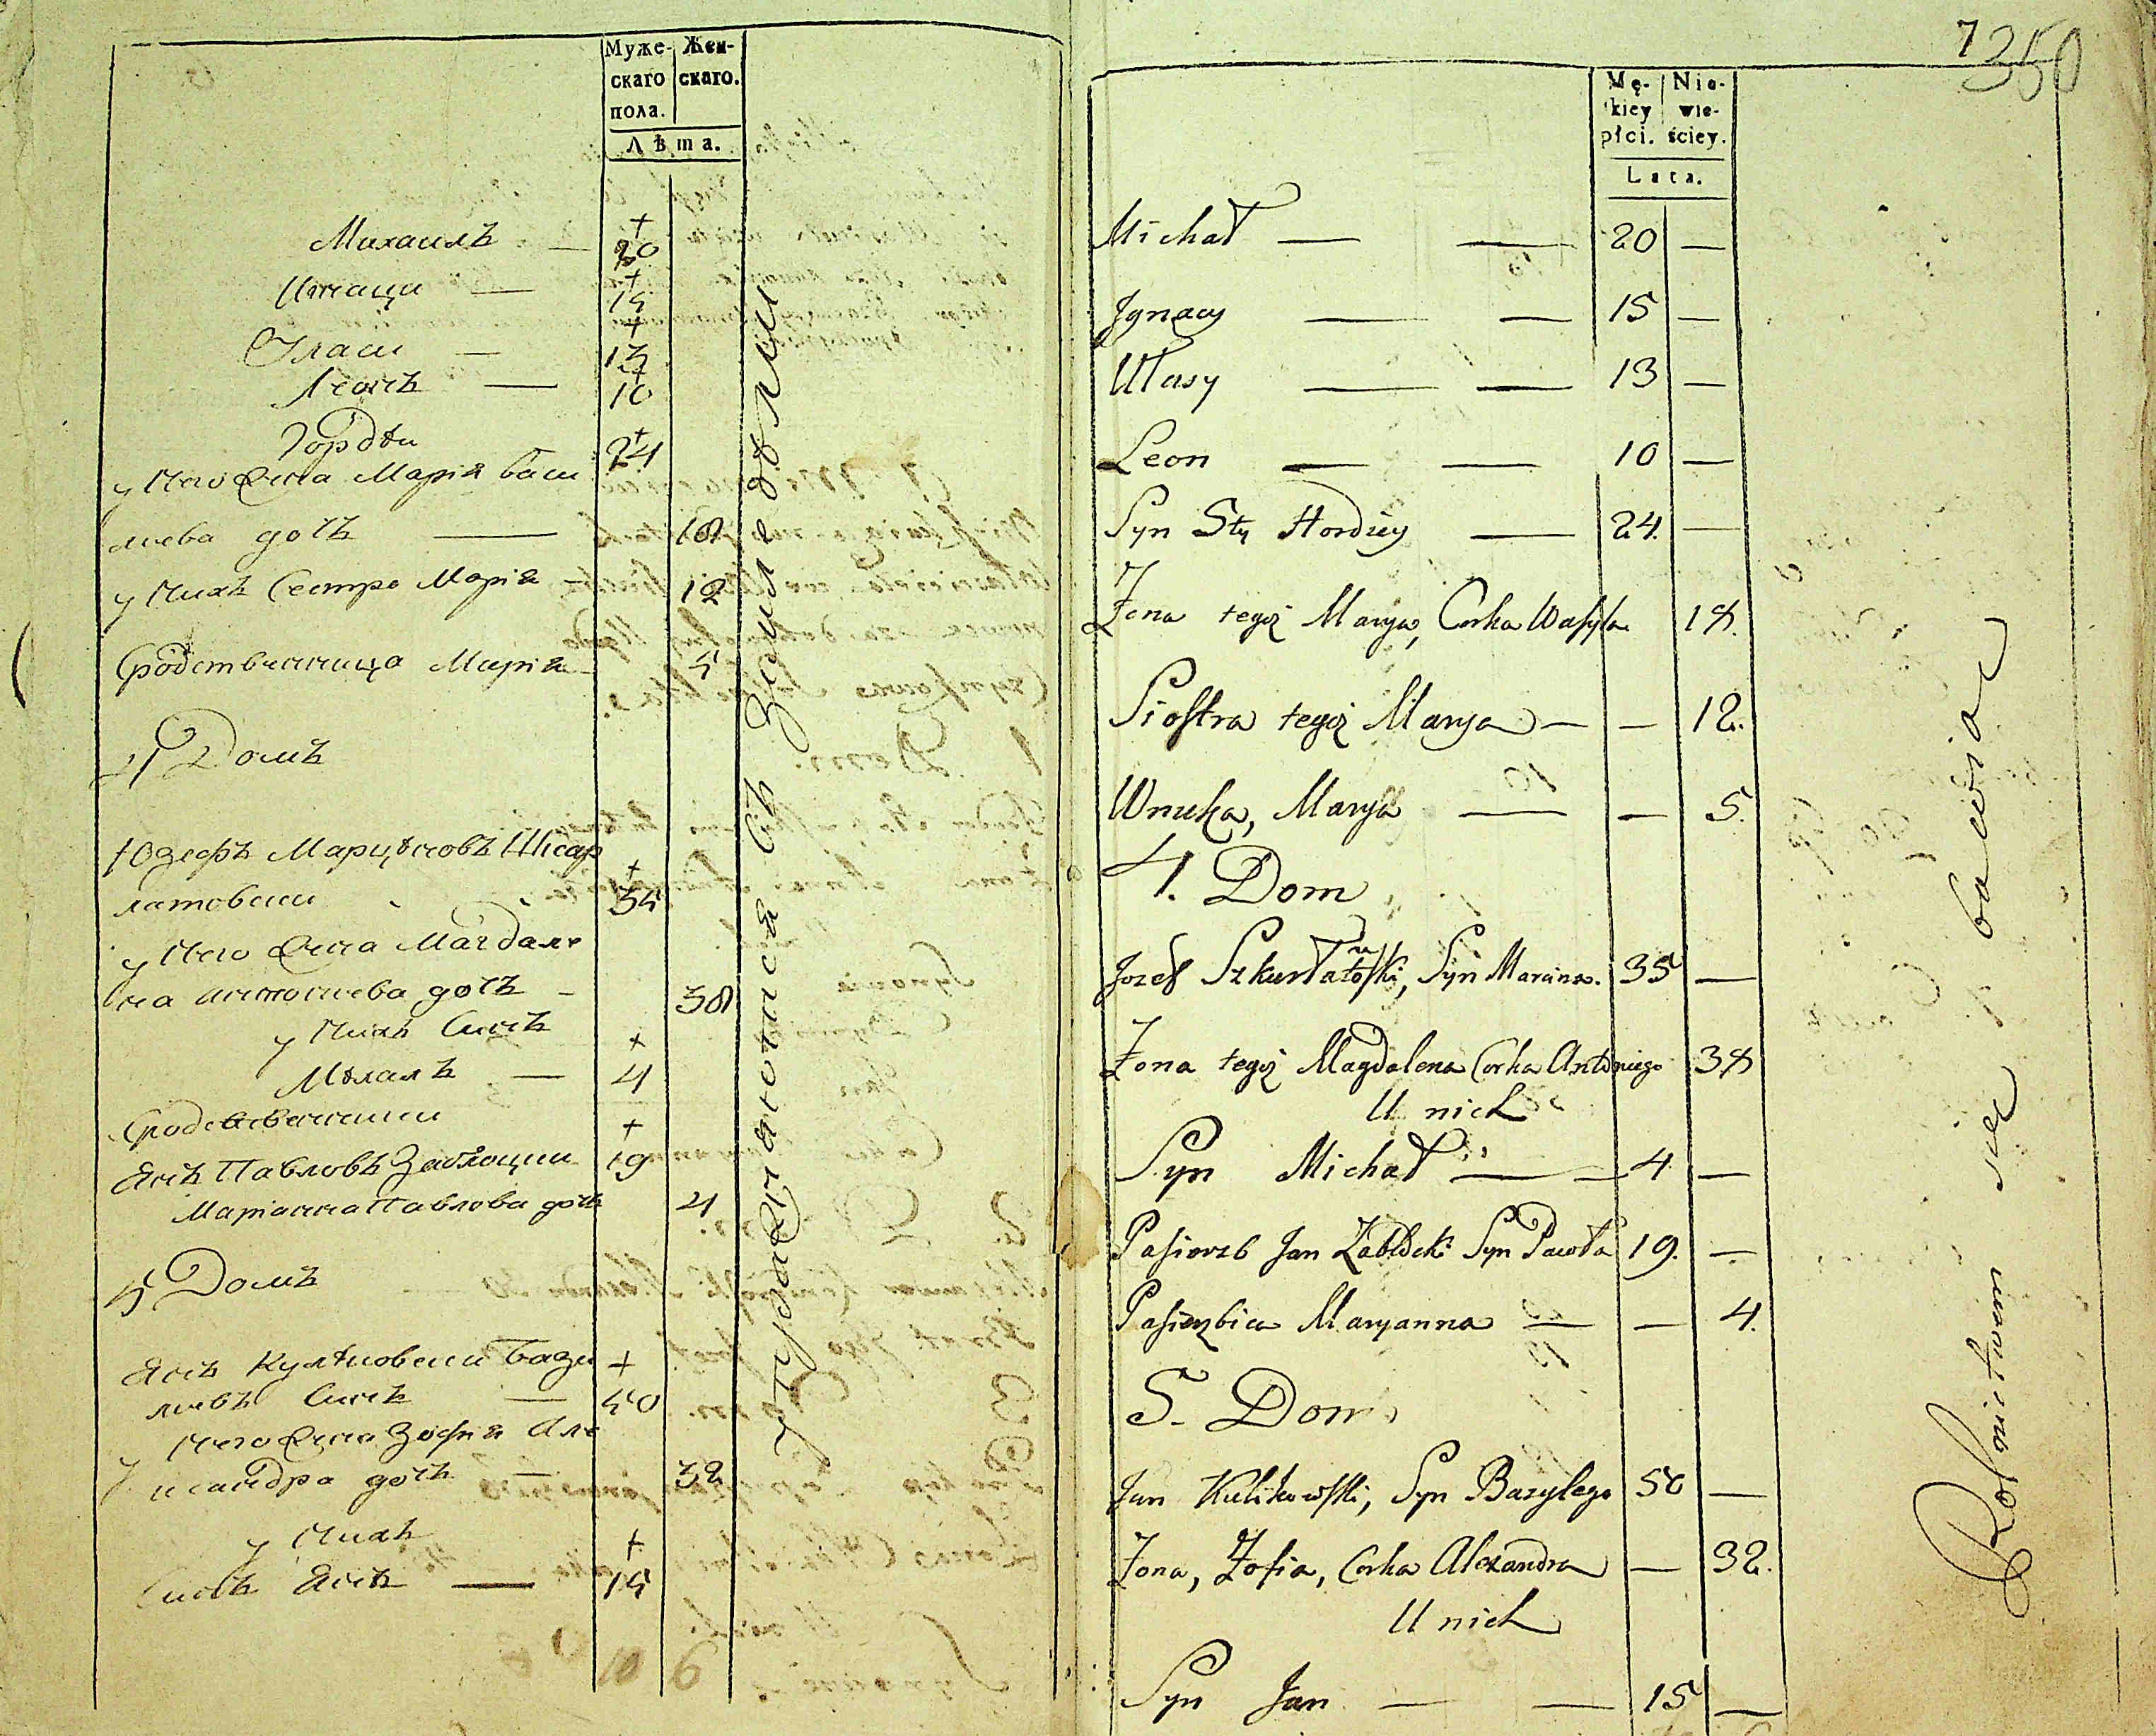 Муже-
скаго
пола.
Жен-
скаго.
Лѣта.
Михаилъ — 20
Игнаци — 15
Уласи — 13
Леонъ — 10
Гордѣи 24
у него Жена Марiя Васи
лiева дочь — 18
у нихъ Сестра Марiя — 12
Сродственница Марiя — 5
4 Домъ
Юзефъ Марцѣновъ Шкар
латовски 35
у него Жена Магдале
на Антонiева дочь — 38
у нихъ Сынъ
Мѣхалъ — 4
Сродственники
Янъ Павловъ Заблоцки 19
Марiанна Павлова дочь 4
5 Домъ
Янъ Кулѣковски Бази
лiевъ Сынъ — 50
у него Жена Зофiя Але
ксандра дочь — 32
у нихъ
Сынъ Янъ — 15
10 6
упражняются въ земледѣлiи
7
350
Mę-
kiey
płci.
Nie-
wie-
ściey.
Lata.
Michał — — 20 —
Jgnacy — — 15 —
Ułasy — — 13 —
Leon — — 10 —
Syn Sty Hordziey — 24. —
Żona tegoż Marya, Corka Wasyla 18.
Siostra tegoż Marya — — 12.
Wnuka, Marya — — 5.
4. Dom
Jozef Szkurłatowski, Syn Marcina. 35 —
Żona tegoż Magdalena Corka Antoniego 38
U nich
Syn Michał — — 4 —
Pasierzb Jan Zabłocki Syn Pawła 19. —
Pasierzbica Maryanna — — 4.
5. Dom
Jan Kulikowski, Syn Bazylego 50 —
Żona, Zofia, Corka Alexandra — 32.
U nich
Syn Jan — — 15 —
Rolnictwem się bawiąc